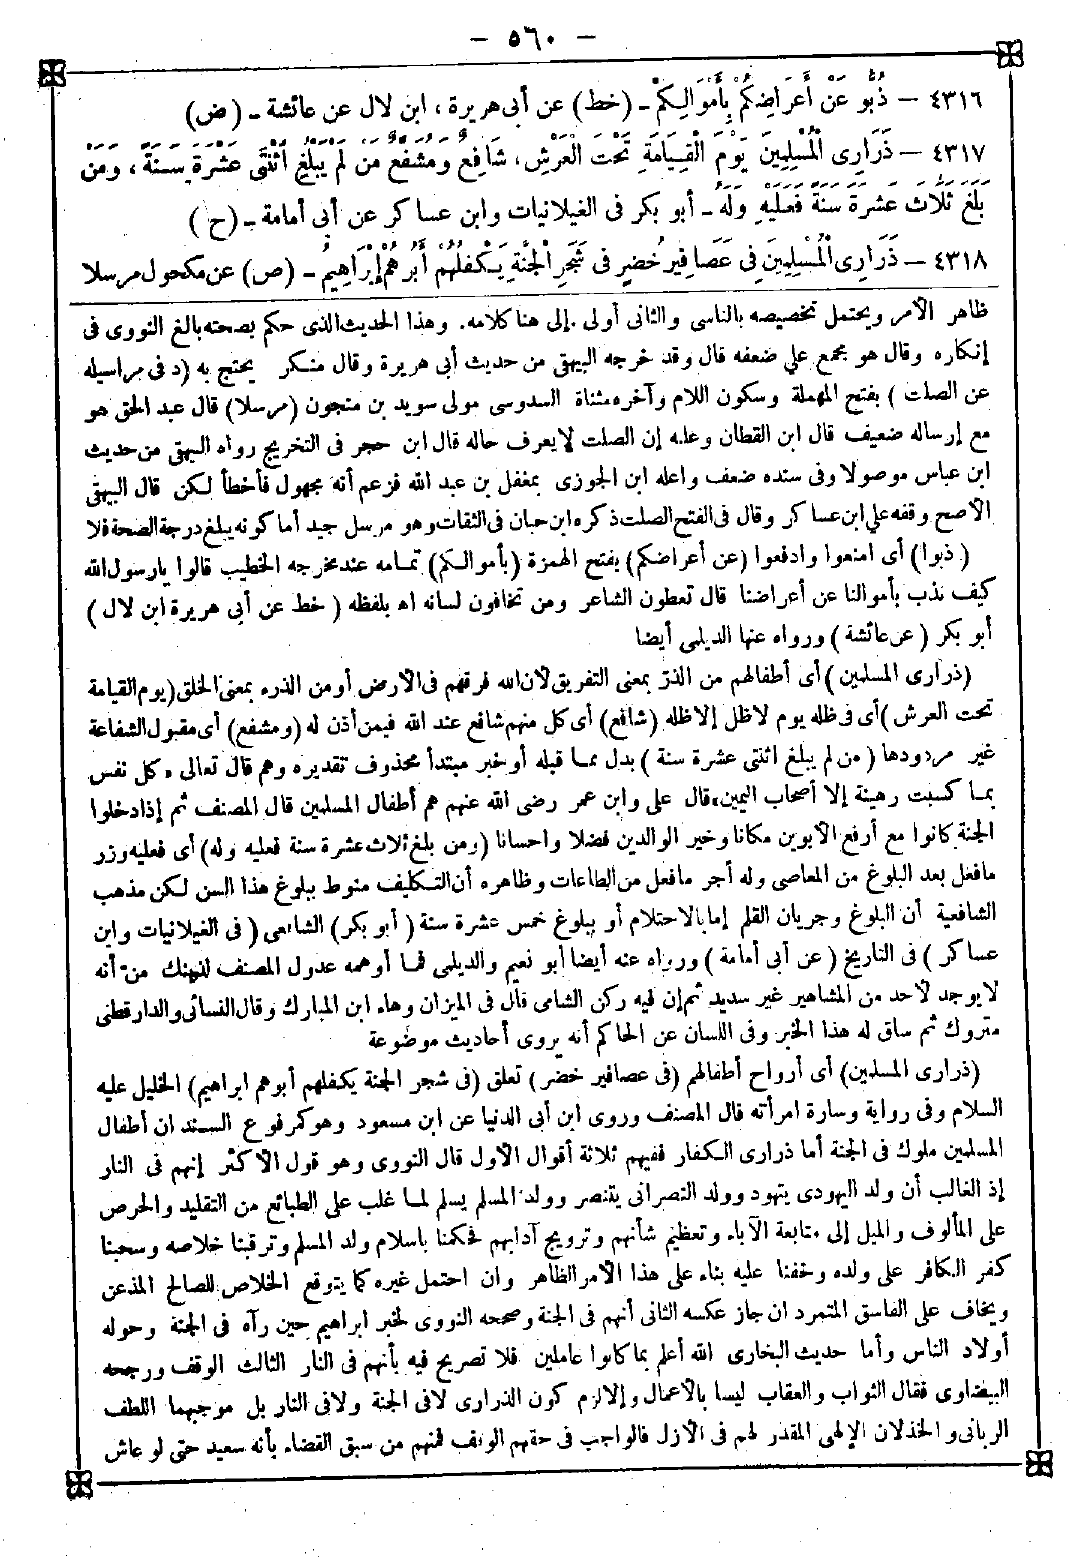 — ٥٦٠ —
٤٣١٦ — ذُبُّوا عَنْ أَعْرَاضِكُمْ بِأَمْوَالِكُمْ - (خط) عن أبى هريرة ، ابن لال عن عائشة - (ض)
٤٣١٧ — ذَرَارِى الْمُسْلِمِينَ يَوْمَ الْقِيَامَةِ تَحْتَ الْعَرْشِ ، شَافِعٌ وَمُشَفَّعٌ مَن لَمْ يَبْلُغِ اثْنَتَى عَشْرَةَ سَنَةً ، وَمَنْ
بَلَغَ ثَلَاثَ عَشْرَةَ سَنَةً فَعَلَيْهِ وَلَهُ - أبو بكر فى الغيلانيات وابن عساكر عن أبى أمامة - (ح)
٤٣١٨ — ذَرَارِى الْمُسْلِمِينَ فِى عَصَافِيرَ خُضْرٍ فِى شَجَرِ الْجَنَّةِ يَكْفُلُهُمْ أَبُوهُمْ إِبْرَاهِيمُ - (ص) عن مكحول مرسلا
ظاهر الأمر ويحتمل تخصيصه بالناسى والثانى أولى .إلى هنا كلامه. وهذا الحديث الذى حكم بصحته بالغ النووى فى
إنكاره وقال هو مجمع على ضعفه قال وقد خرجه البيهقى من حديث أبى هريرة وقال منكر يحتج به (د فى مراسيله
عن الصلت ) بفتح المهملة وسكون اللام وآخره مثناة السدوسى مولى سويد بن منجون (مرسلا) قال عبد الحق هو
مع إرساله ضعيف قال ابن القطان وعلته إن الصلت لا يعرف حاله قال ابن حجر فى التخريج رواه البيهقى من حديث
ابن عباس موصولا وفى سنده ضعف واعله ابن الجوزى بمغفل بن عبد الله فزعم أنه مجهول فأخطأ لكن قال البيهقى
الأصح وقفه على ابن عساكر وقال فى الفتح الصلت ذكره ابن حبان فى الثقات وهو مرسل جيد أما كونه يبلغ درجة الصحة فلا
(ذبوا) أى امنعوا وادفعوا (عن أعراضكم) بفتح الهمزة (بأموالكم) تمامه عند مخرجه الخطيب قالوا يارسول الله
كيف نذب بأموالنا عن أعراضنا قال تعطون الشاعر ومن تخافون لسانه اه بلفظه ( خط عن أبى هريرة ابن لال )
أبو بكر ( عن عائشة ) ورواه عنها الديلمى أيضا
(ذرارى المسلمين ) أى أطفالهم من الذر بمعنى التفريق لأن الله فرقهم فى الأرض أو من الذرء بمعنى الخلق (يوم القيامة
تحت العرش ) أى فى ظله يوم لاظل إلا ظله (شافع) أى كل منهم شافع عند الله فيمن أذن له (ومشفع) أى مقبول الشفاعة
غير مردودها ( من لم يبلغ اثنتى عشرة سنة ) بدل مما قبله أو خبر مبتدأ محذوف تقديره وهم قال تعالى «كل نفس
بما كسبت رهينة إلا أصحاب اليمين» قال على وابن عمر رضى الله عنهم هم أطفال المسلمين قال المصنف ثم إذا دخلوا
الجنة كانوا مع أرفع الأبوين مكانا وخير الوالدين فضلا واحسانا (ومن بلغ ثلاث عشرة سنة فعليه وله) أى فعليه وزر
مافعل بعد البلوغ من المعاصى وله أجر مافعل من الطاعات وظاهره أن التكليف منوط ببلوغ هذا السن لكن مذهب
الشافعية أن البلوغ وجريان القلم إما بالاحتلام أو ببلوغ خمس عشرة سنة ( أبو بكر) الشافعى ( فى الغيلانيات وابن
عساكر ) فى التاريخ ( عن أبى أمامة ) ورواه عنه أيضا أبو نعيم والديلمى فما أوهمه عدول المصنف لذينك من أنه
لايوجد لأحد من المشاهير غير سديد ثم إن فيه ركن الشامى قال فى الميزان وهاه ابن المبارك وقال النسائى والدارقطنى
متروك ثم ساق له هذا الخبر وفى اللسان عن الحاكم أنه يروى أحاديث موضوعة
(ذرارى المسلمين) أى أرواح أطفالهم (فى عصافير خضر ) تعلق (فى شجر الجنة يكفلهم أبوهم ابراهيم) الخليل عليه
السلام وفى رواية وسارة امرأته قال المصنف وروى ابن أبى الدنيا عن ابن مسعود وهو كمرفوع السند ان أطفال
المسلمين ملوك فى الجنة أما ذرارى الكفار ففيهم ثلاثة أقوال الأول قال النووى وهو قول الأكثر إنهم فى النار
إذ الغالب أن ولد اليهودى يتهود وولد النصرانى يتنصر وولد المسلم يسلم لما غلب على الطبائع من التقليد والحرص
على المألوف والميل إلى متابعة الآباء وتعظيم شأنهم وترويج آدابهم فحكمنا باسلام ولد المسلم وترقبنا خلاصه وسحبنا
كفر الكافر على ولده وخفنا عليه بناء على هذا الأمر الظاهر وان احتمل غيره كما يتوقع الخلاص للصالح المذعن
ويخاف على الفاسق المتمرد ان جاز عكسه الثانى أنهم فى الجنة وصححه النووى لخبر ابراهيم حين رآه فى الجنة وحوله
أولاد الناس وأما حديث البخارى الله أعلم بما كانوا عاملين فلا تصريح فيه بأنهم فى النار الثالث الوقف ورجحه
البيضاوى فقال الثواب والعقاب ليسا بالأعمال وإلا لزم كون الذرارى لافى الجنة ولافى النار بل موجبهما اللطف
الربانى والخذلان الإلهى المقدر لهم فى الأزل فالواجب فى حقهم الوقف فمنهم من سبق القضاء بأنه سعيد حتى لو عاش